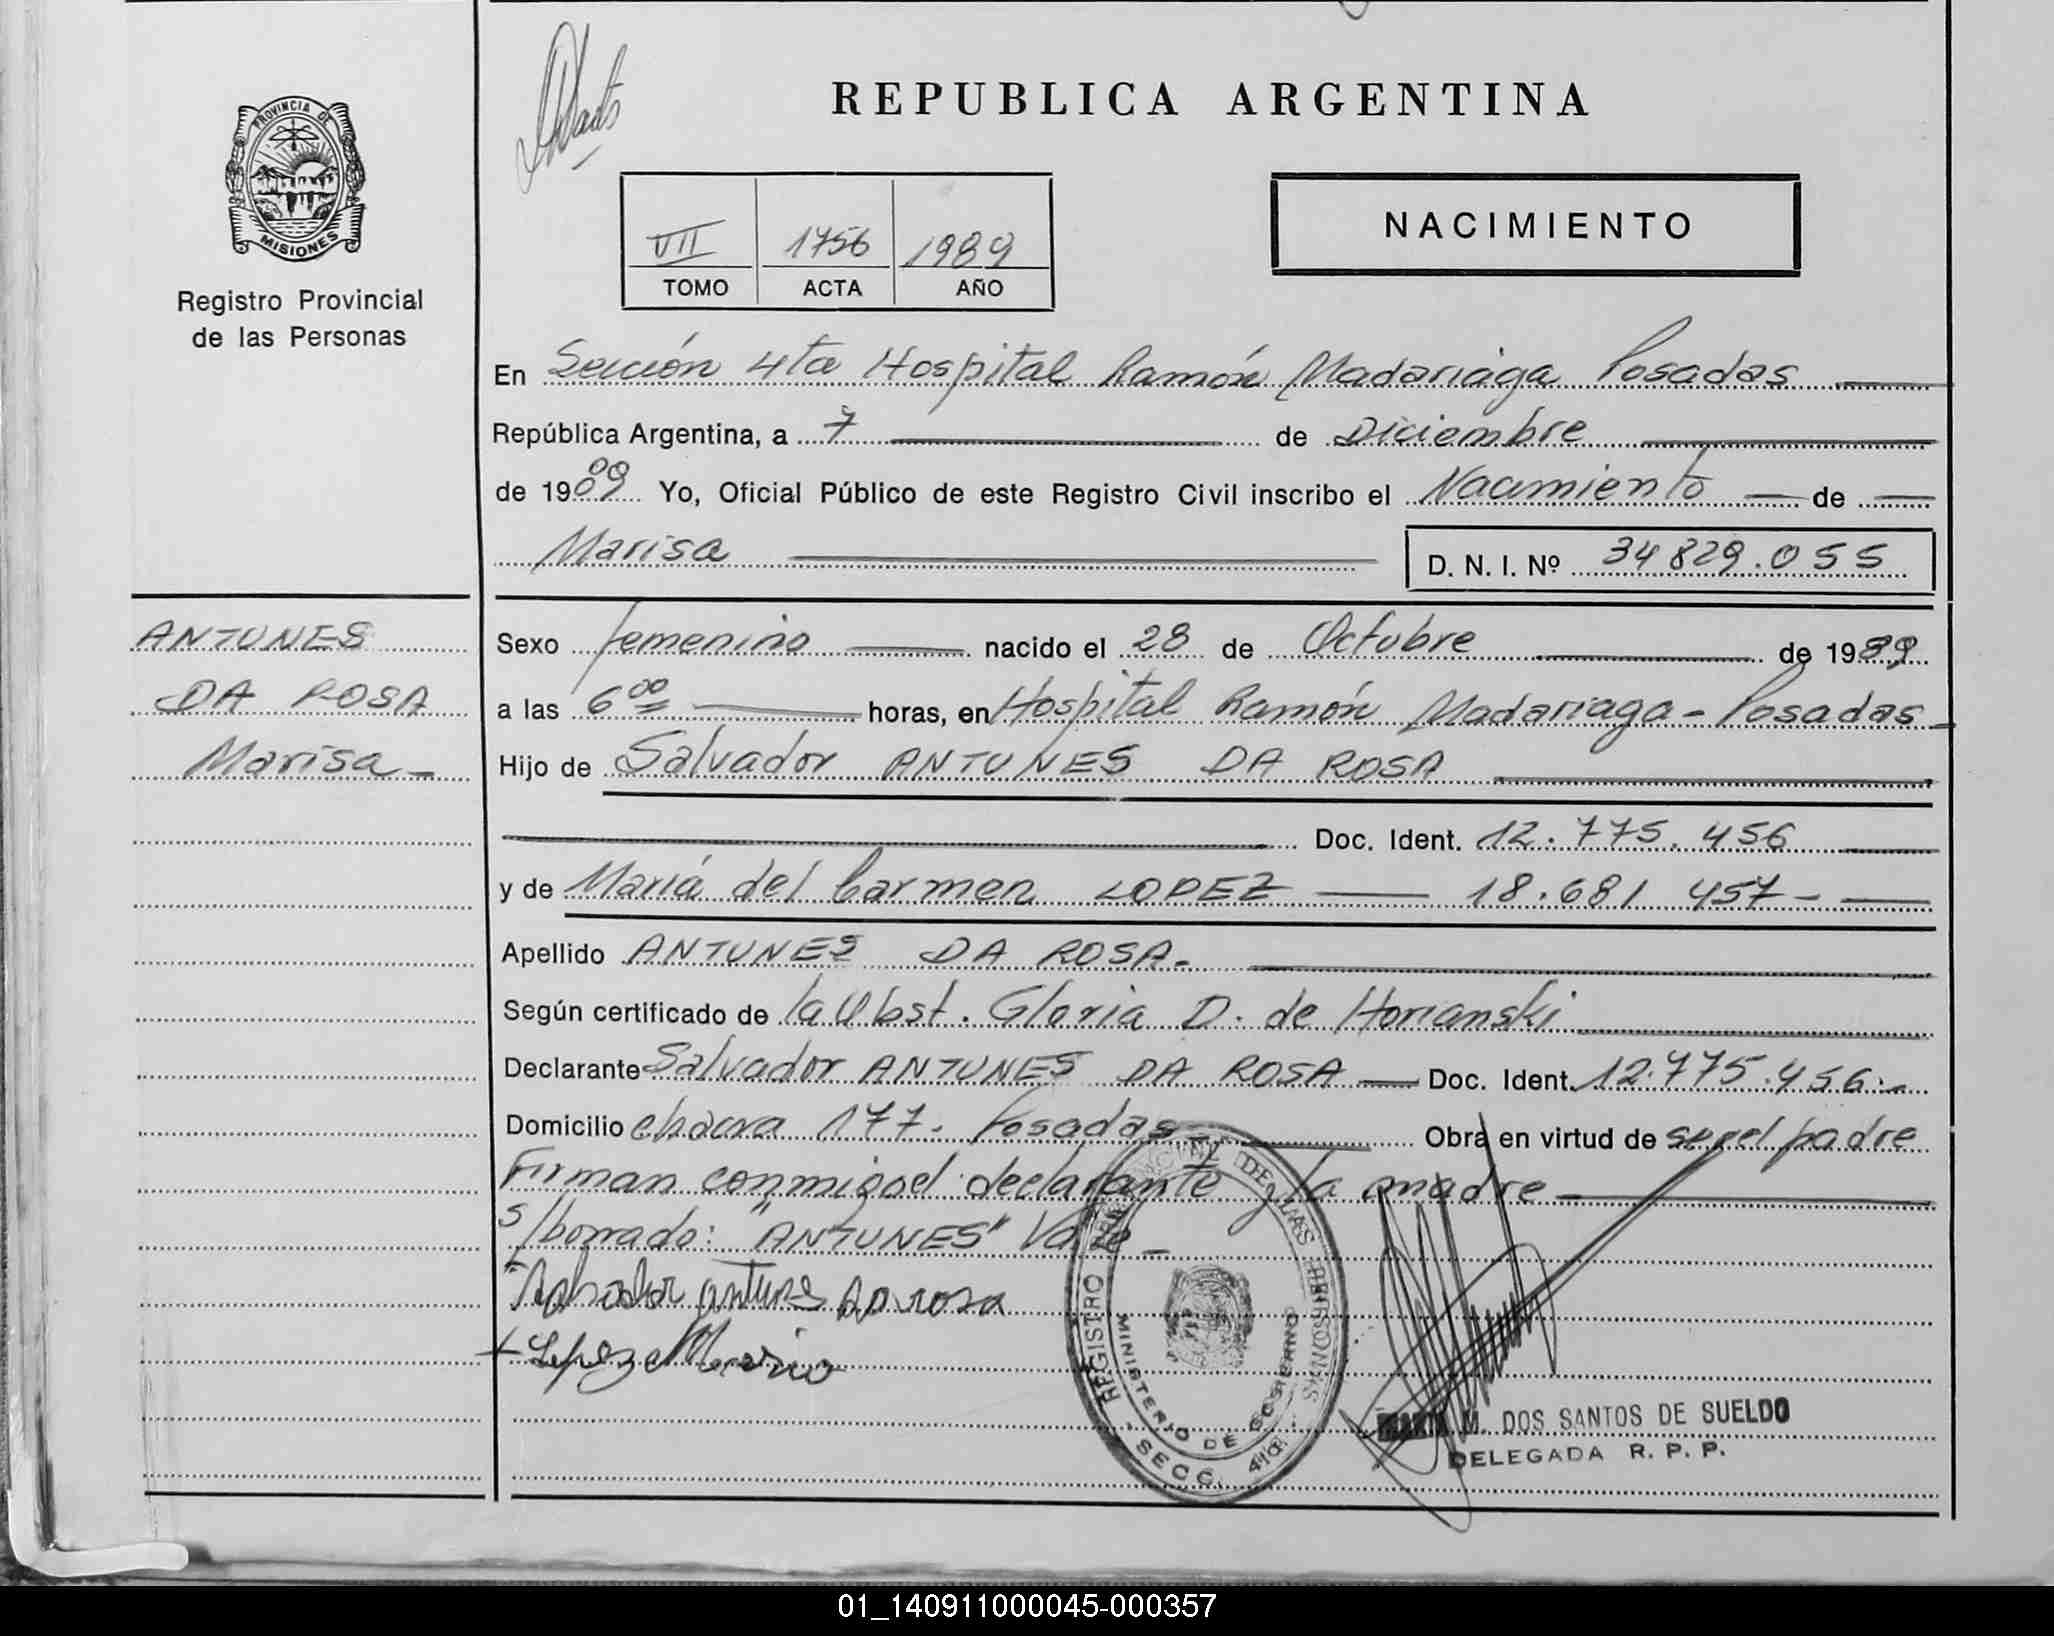 REPUBLICA ARGENTINA
PROVINCIA DE
MISIONES
Registro Provincial
de las Personas
VII 1756 1989
TOMO ACTA AÑO
NACIMIENTO
En Sección 4ta Hospital Ramón Madariaga Posadas
República Argentina, a 7 de Diciembre
de 1989 Yo, Oficial Público de este Registro Civil inscribo el Nacimiento de
Marisa D. N. I. Nº 34829.055
ANTUNES
DA ROSA
Marisa
Sexo femenino nacido el 28 de Octubre de 1989
a las 6 00 horas, en Hospital Ramón Madariaga - Posadas
Hijo de Salvador ANTUNES DA ROSA
Doc. Ident. 12.775.456
y de María del Carmen LOPEZ 18.681 457
Apellido ANTUNES DA ROSA.
Según certificado de la Obst. Gloria D. de Horianski
Declarante Salvador ANTUNES DA ROSA Doc. Ident. 12.775.456.
Domicilio chacra 177. Posadas Obra en virtud de ser el padre
Firman conmigo el declarante y la madre
s/borrado: "ANTUNES" Vale
Salvador antunes Da rosa
Lopez Maria
REGISTRO PROVINCIAL DE LAS PERSONAS
MINISTERIO DE GOBIERNO
SECC. 4ta
M. DOS SANTOS DE SUELDO
DELEGADA R. P. P.
01_140911000045-000357